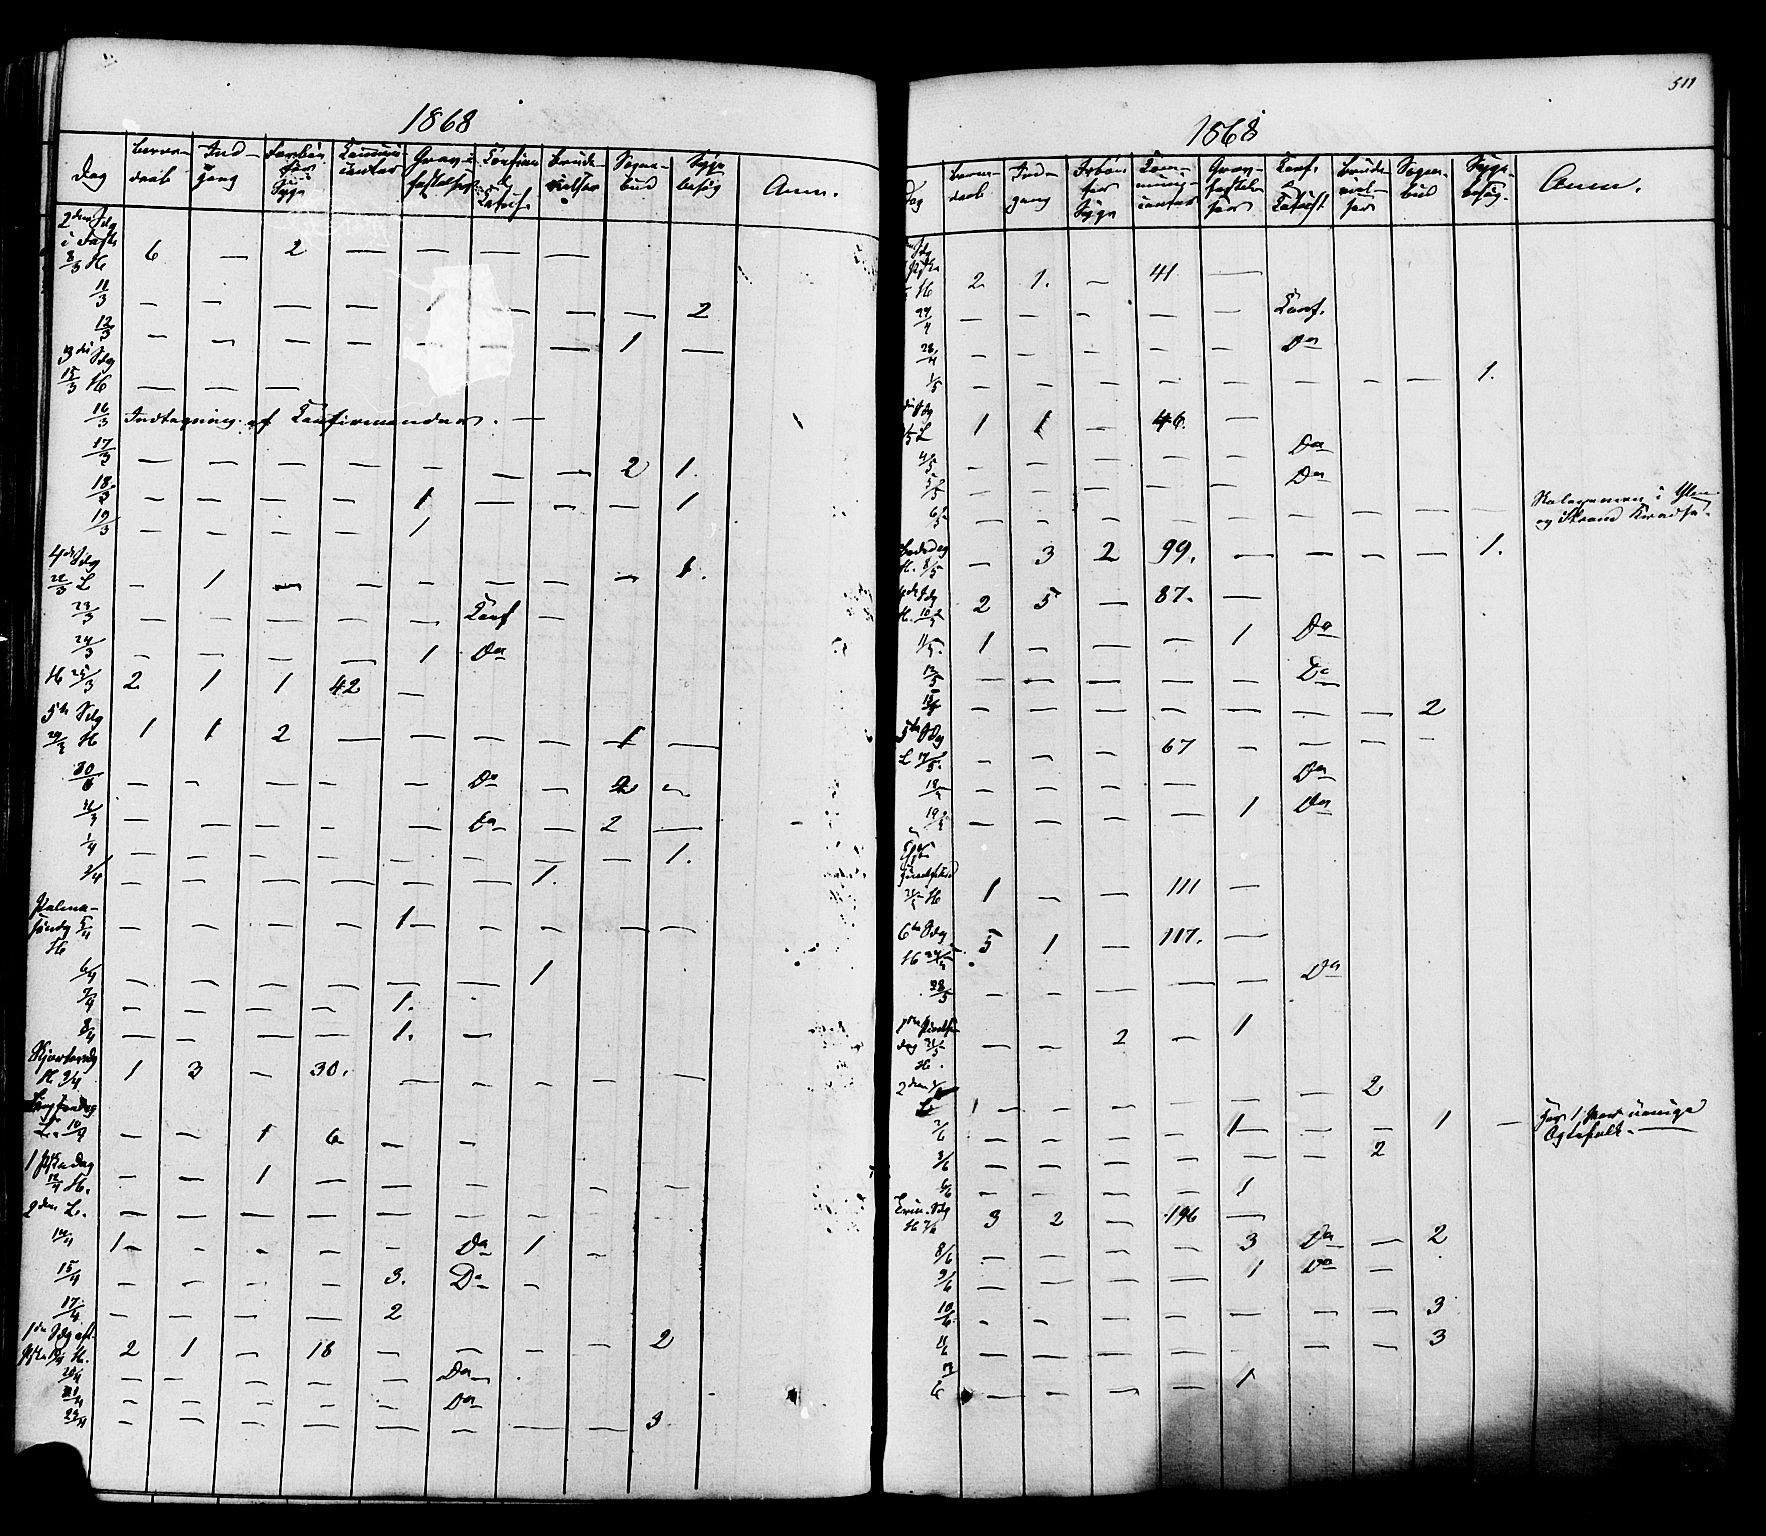 1868
Dag Barne- daab Ind- gang Forbön for Syge Communi- canter Grav- fæstelser Confirm. & Catech. Brude- vielser Sogne- bud Syge- besøg Anm.
2den Sdg
i Faste
8/3 H 6 — 2 — — — —
11/3 — — — — — — — 2
12/3 — — — — — — — 1 —
3die Sdg
15/3 H — — —
16/3 Indtagning af Confirmander. —
17/3 — — — — — — — 2 1.
18/3 — — — — 1 — — — 1
19/3 — — — — 1
4de Sdg
22/3 L — 1 — — — — — — 1.
23/3 — — — — — Conf —
24/3 — — — — 1 Do
H 25/3 2 1 1 42 —
5te Sdg
29/3 H 1 1 2 — — — — 1 —
30/3 — — — — — Do — 2 —
31/3 — — — — — Do — 2 —
1/4 — — — — — — — — 1.
2/4 — — — — — — 1.
Palme-
søndg 5/4 — — — — 1 — — — —
H
6/4 — — — — — — 1
7/4 — — — — 1.
8/4 — — — — 1. —
Skjærtorsdg
H 9/4 1 3 — 30. — — — — —
Langfredag
L. 10/4 — — 1 6 — —
1 Paaskedag
12/4 H. — — 1 — — — — — —
2den L. — — — — — — — — —
14/4 1 — — — — Do 1 —
15/4 — — — — 3. Do —
17/4 — — — — 2
1ste Sdg eft.
Paaske 19/4 H. 2 1 — 18 — — — — 2
20/4 — — — — — Do
21/4 — — — — — Do
22/4 — — — — — — — 3

511
1868
Dag Barne- daab Ind- gang Forbön for Syge Com- muni- canter Grav- fæstel- ser Conf. & Catech. Brude- viel- ser Sogne- bud Syge- besøg. Anm.
Sdg
H 2 1. — 41 —
27/4 — — — — — Conf.
28/4 — — — — — Do
1/5 — — — — — — — — 1.
Sdg
3/5 L 1 1 — 46. —
4/5 — — — — — Do
5/5 — — — — — Do
6/5 — — — — — — — — — og Strand Kredse.
Bededag
H. 8/5 — 3 2 99. — — — — 1.
4de Sdg
H. 10/5 2 5 — 87. —
11/5. 1 — — — 1 Do
12/5 — — — — — Do
— — — — — — — 2
5te Sdg
L 17/5. — — — 67 — — — —
18/5 — — — — — Do
19/5 — — — — 1 Do
21/5 H 1 — — 111 —
6te Sdg
H 24/5 5 1 — 117. —
28/5 — — — — — Do
1ste Pintse-
dag 31/5 — — 2 — 1
H.
2den 1/6
L 1 — — — — — 2
2/6 — — — — 1 — — 1 — For 1 Par uenige
Ægtefolk. —
3/6 — — — — — — 2
6/6 — — — — 1
Trin. Sdg
H 7/6 3 2 — 196 —
8/6 — — — — 3 Do — 2
9/6 — — — — 1 Do —
10/6 — — — — — — — 3
11/6 — — — — — — — 3
12/6 — — — — 1